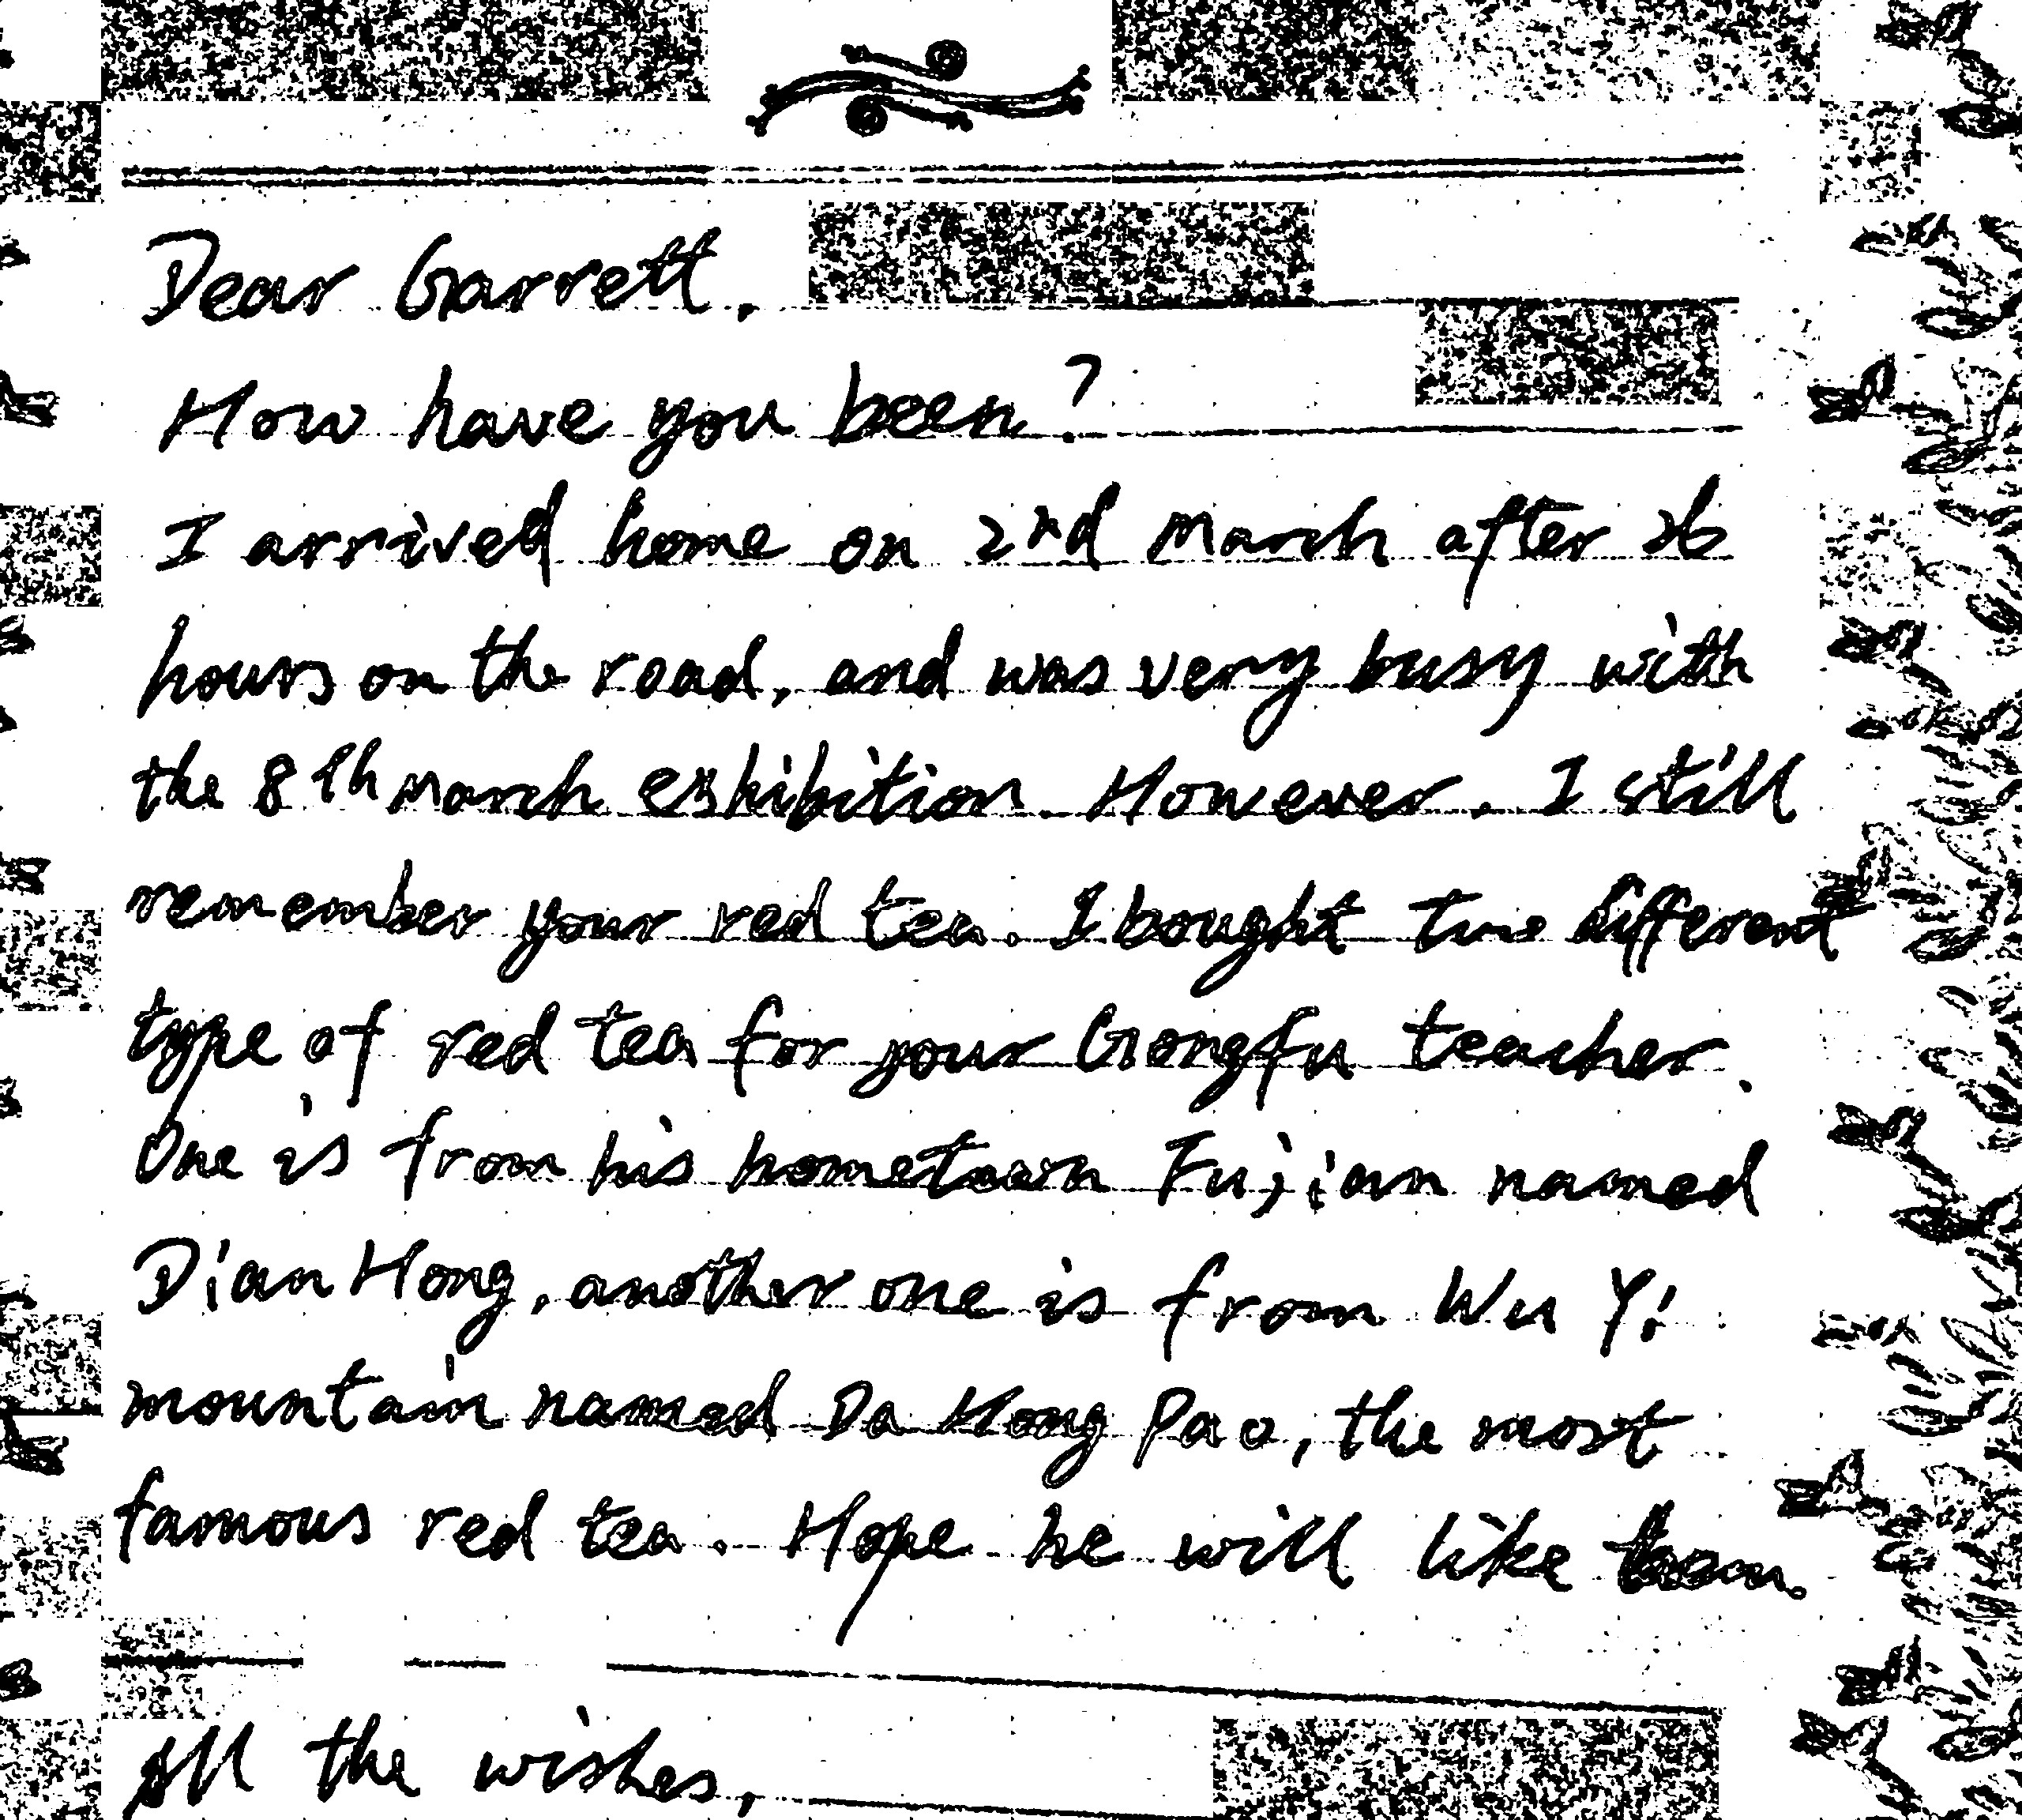 Dear Garrett,
How have you been?
I arrived home on 2nd March after 26
hours on the road, and was very busy with
the 8th March exhibition. However, I still
remember your red tea. I bought two different
type of red tea for your Gongfu teacher.
One is from his hometown Fujian named
Dian Hong, another one is from Wu Yi
mountain named Da Hong Pao, the most
famous red tea. Hope he will like them.
All the wishes,